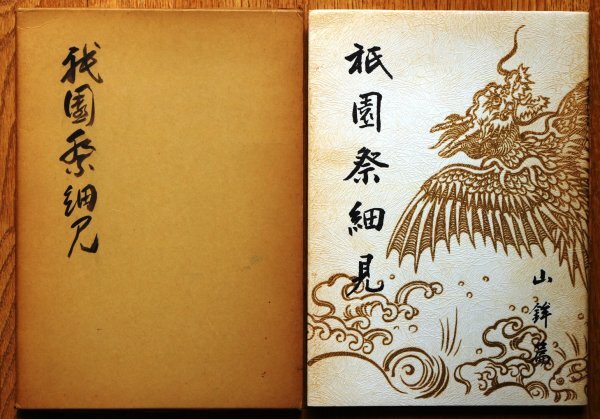 祇園祭細見
祇園祭細見
山鉾篇